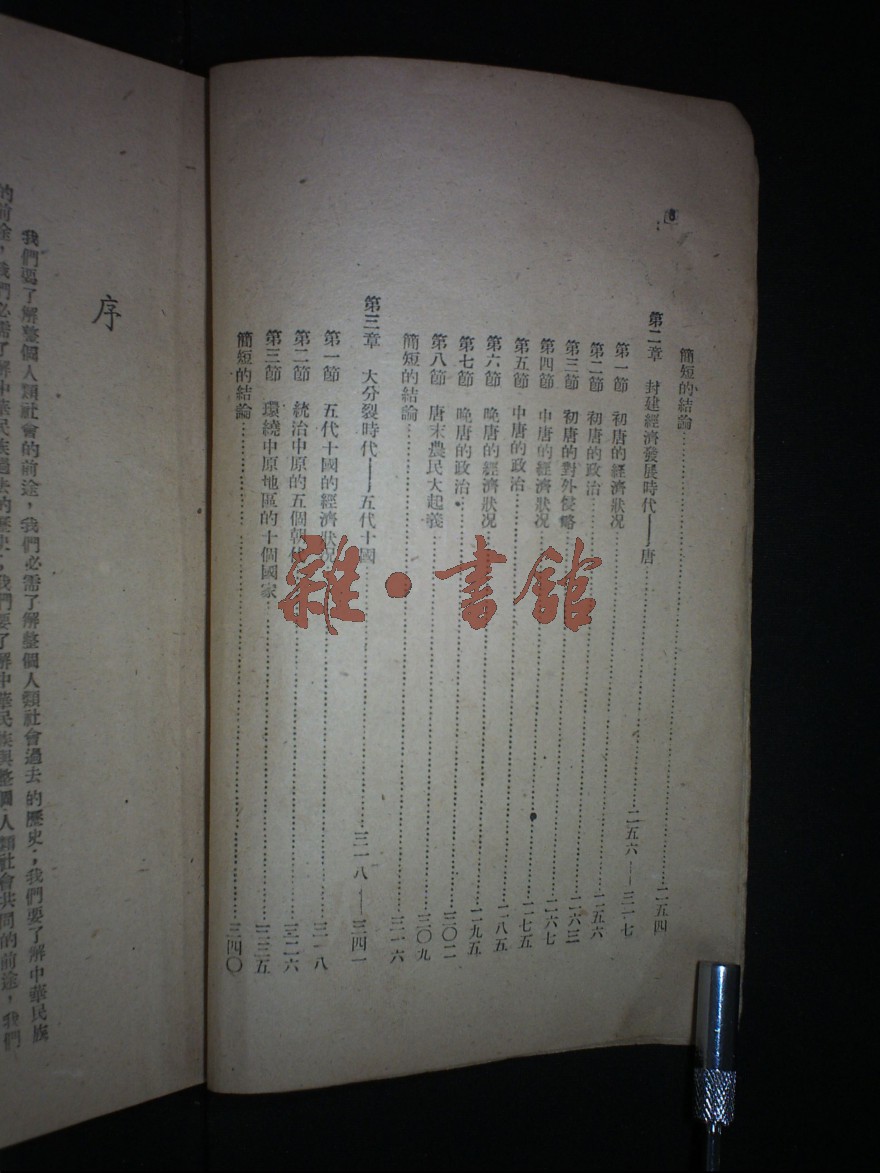 簡短的結論……二五四
第二章 封建經濟發展時代——唐……二五六——三一七
第一節 初唐的經濟狀況……二五六
第二節 初唐的政治……二六三
第三節 初唐的對外侵略……二六七
第四節 中唐的經濟狀況……二七五
第五節 中唐的政治……二八五
第六節 晚唐的經濟狀況……二九五
第七節 晚唐的政治……三〇二
第八節 唐末農民大起義……三〇九
簡短的結論……三一六
第三章 大分裂時代——五代十國……三一八——三四一
第一節 五代十國的經濟狀況……三一八
第二節 統治中原的五個朝代……三二六
第三節 環繞中原地區的十個國家……三三五
簡短的結論……三四〇
序
我們要了解整個人類社會的前途，我們必需了解整個人類社會過去的歷史；我們要了解中華民族
的前途，我們必需了解中華民族過去的歷史；我們要了解中華民族與整個人類社會共同的前途，我們
雜·書館